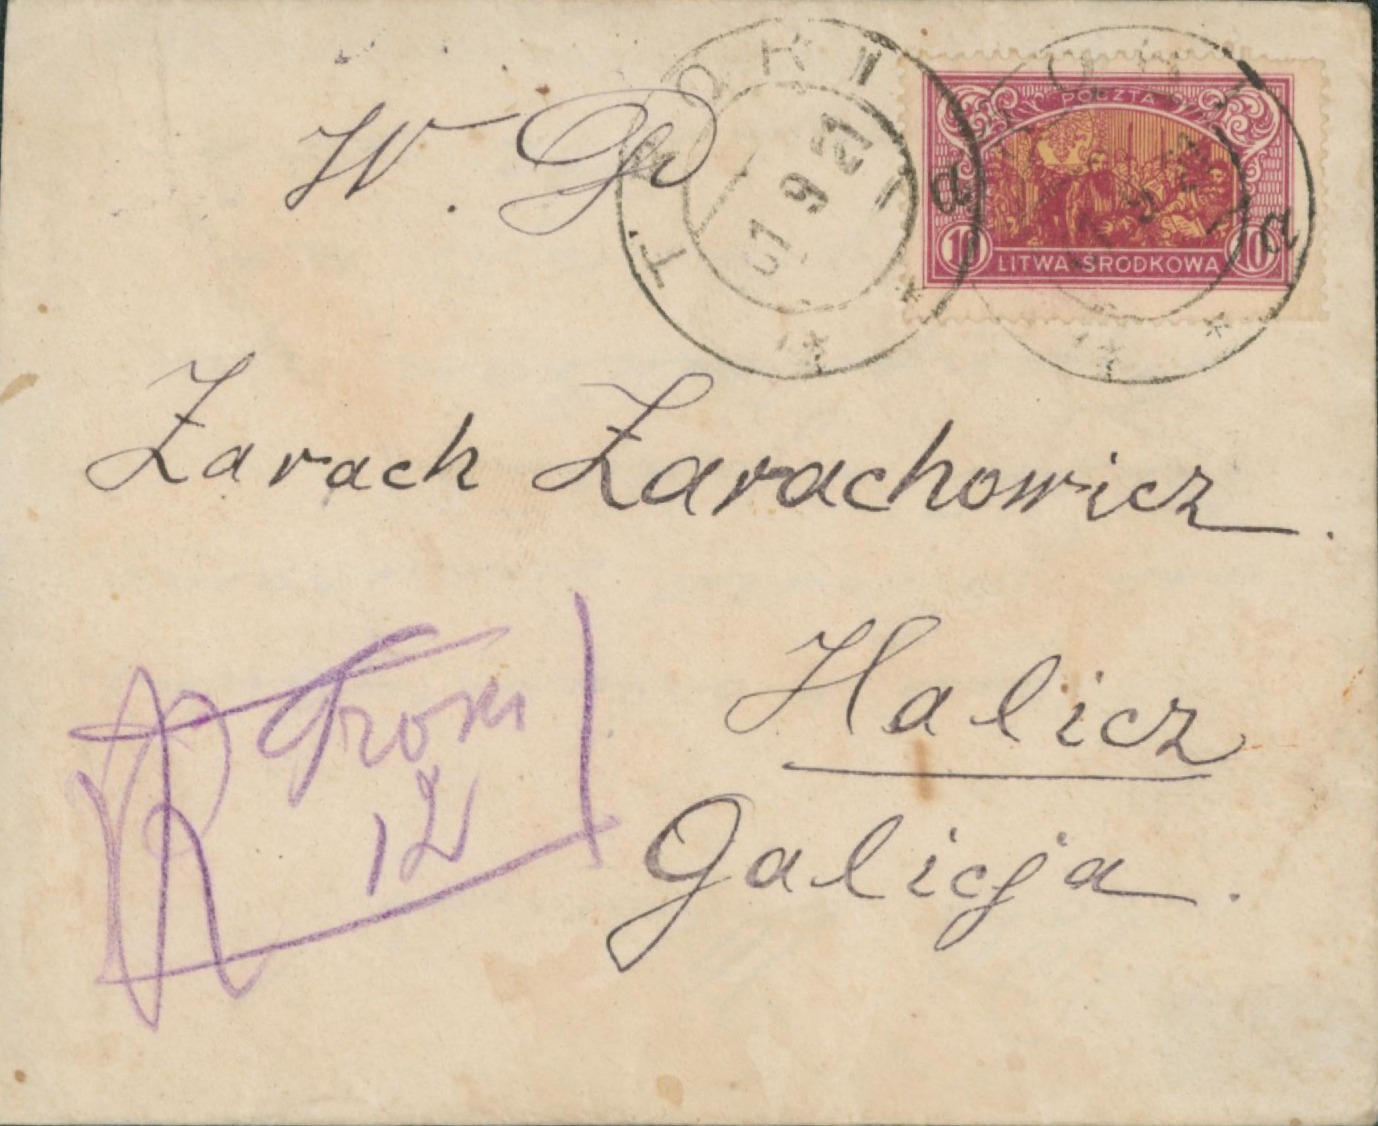 W. Po
TROKI
a
67 9 21
POCZTA
10 LITWA ŚRODKOWA 10
a
Zarach Zarachowicz.
Halicz
Galicja.
R Troki
12